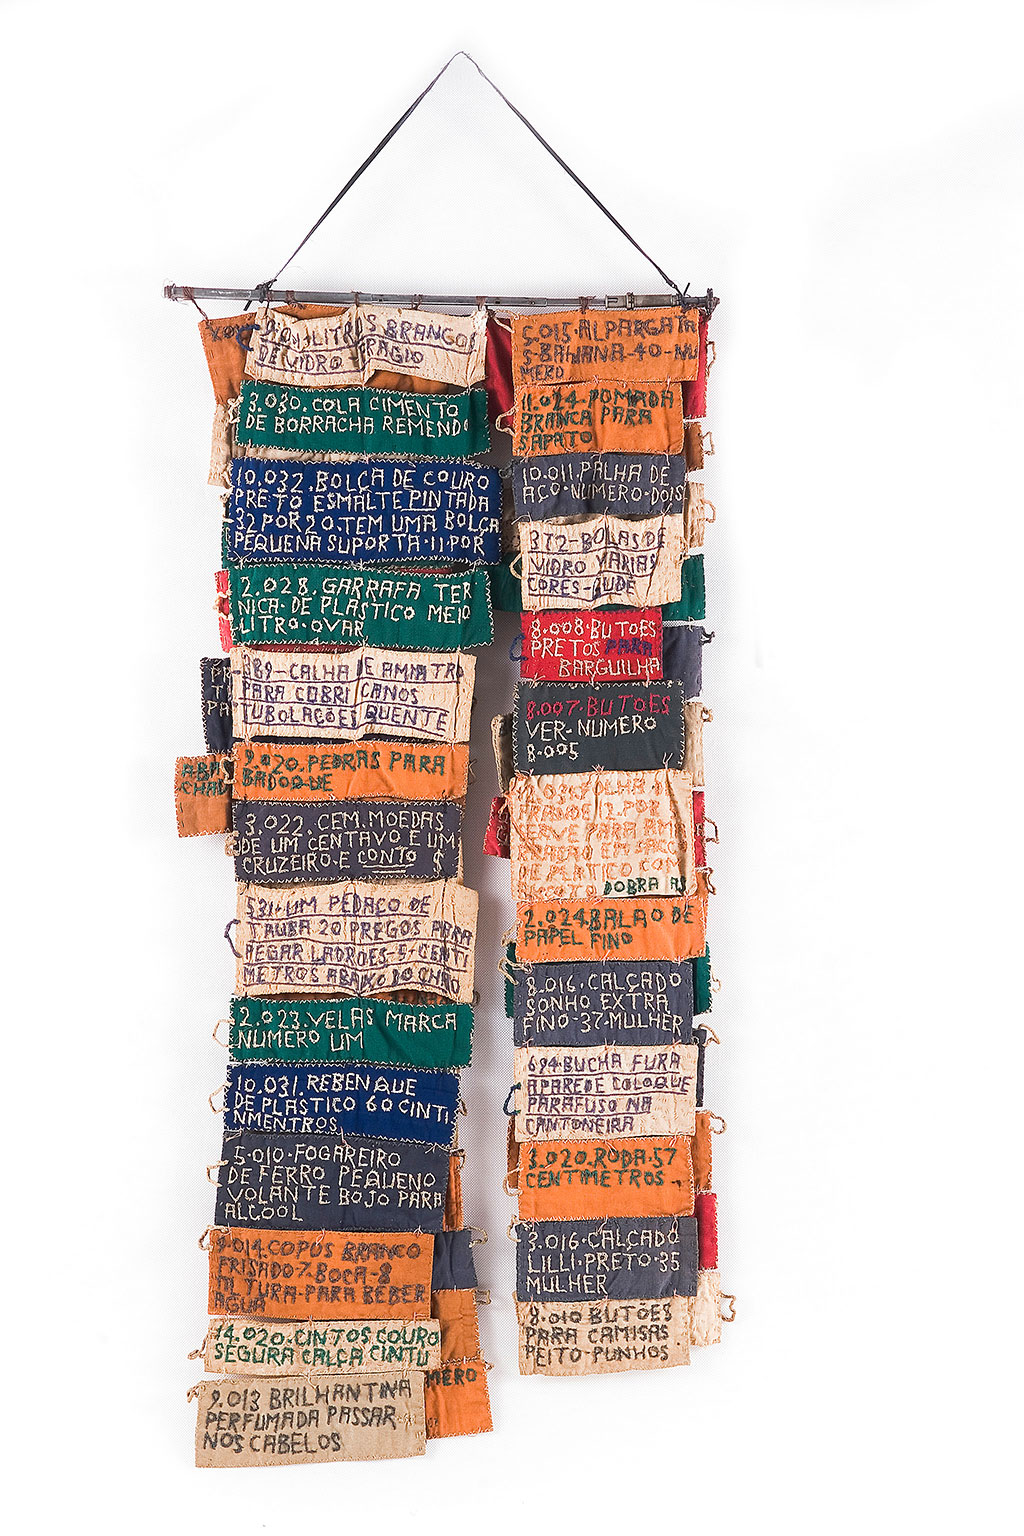 LITROS BRANGOS
DE VIDRO
3.030. COLA CIMENTO
DE BORRACHA REMENDO
10.032. BOLÇA DE COURO
PRETO ESMALTE PINTADA
32 POR 20. TEM UMA BOLÇA
PEQUENA SUPORTA. 11. POR
2.028. GARRAFA TER
NICA. DE PLASTICO MEIO
LITRO. OVAR
389-CALHA DE AMIATRO
PARA COBRI CANOS
TUBOLAÇÕES QUENTE
9.020. PEDRAS PARA
BADOQUE
3.022. CEM. MOEDAS
DE UM CENTAVO E UM
CRUZEIRO. E CONTO $
531-UM PEDAÇO DE
TAUBA 20 PREGOS PARA
PEGAR LADROES-5-CENTI
METROS ABAIXO DO CHÃO
2.023. VELAS MARCA
NUMERO UM
10.031. REBENQUE
DE PLASTICO 60 CINTI
NMENTROS
5.010-FOGAREIRO
DE FERRO PEQUENO
VOLANTE BOJO PARA
ALCOOL
9.014. COPOS BRANCO
FRISADO 7. BOCA-8
ALTURA-PARA BEBER
AGUA
14.020. CINTOS COURO
SEGURA CALÇA CINTU
9.013 BRILHANTINA
PERFUMADA PASSAR
NOS CABELOS
MERO
5.015. ALPARGATA
S-BAHIANA-40-NU
MERO
11.024-POMADA
BRANCA PARA
SAPATO
10.011. PALHA DE
AÇO-NUMERO-DOIS
372-BOLAS DE
VIDRO VARIAS
CORES-GUDE
8.008. BUTOES
PRETOS PARA
BARGUILHA
8.007. BUTOES
VER-NUMERO
8.005
FOLHA
GRANDE 12. POR
SERVE PARA AM
RRAÇÃO EM SACO
DE PLATICO COM
DOBRA AS
2.024. BALAO DE
PAPEL FINO
8.016. CALÇADO
SONHO EXTRA
FINO-37-MULHER
694-BUCHA FURA
APAREDE COLOQUE
PARAFUSO NA
CANTONEIRA
3.020. RODA-57
CENTIMETROS-
3.016-CALÇADO
LILLI-PRETO-35
MULHER
8.010 BUTÕES
PARA CAMISAS
PEITO-PUNHOS